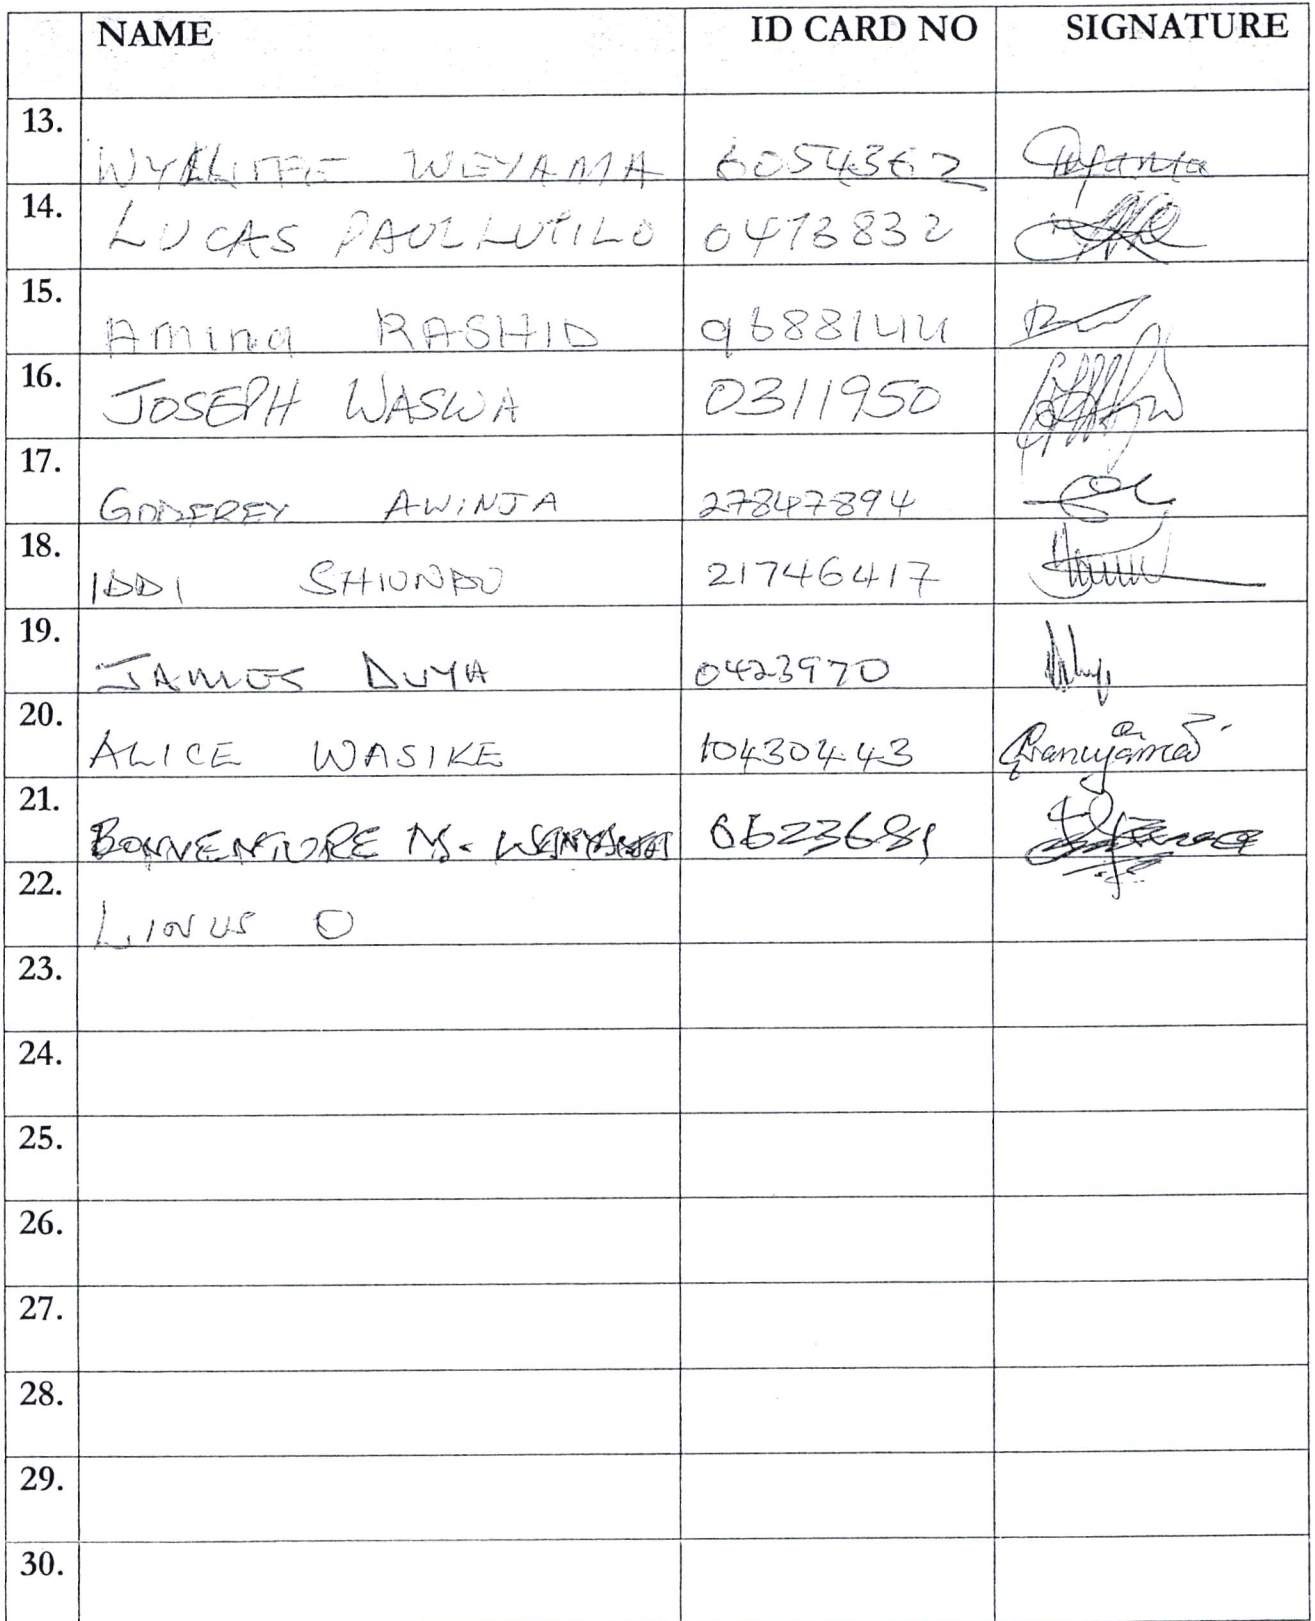 NAME ID CARD NO SIGNATURE
13. WYKLIFFE WEYAMA 6054362
14. LUCAS PAUL LUTILO 0473832
15. Amina RASHID 9688144
16. JOSEPH WASWA 0311950
17. GODFREY AWINJA 27847894
18. IDDI SHIUNDU 21746417
19. JAMES DUYA 0423970
20. ALICE WASIKE 10430443
21. BONVENTURE M. 
22. LINUS O
23.
24.
25.
26.
27.
28.
29.
30.